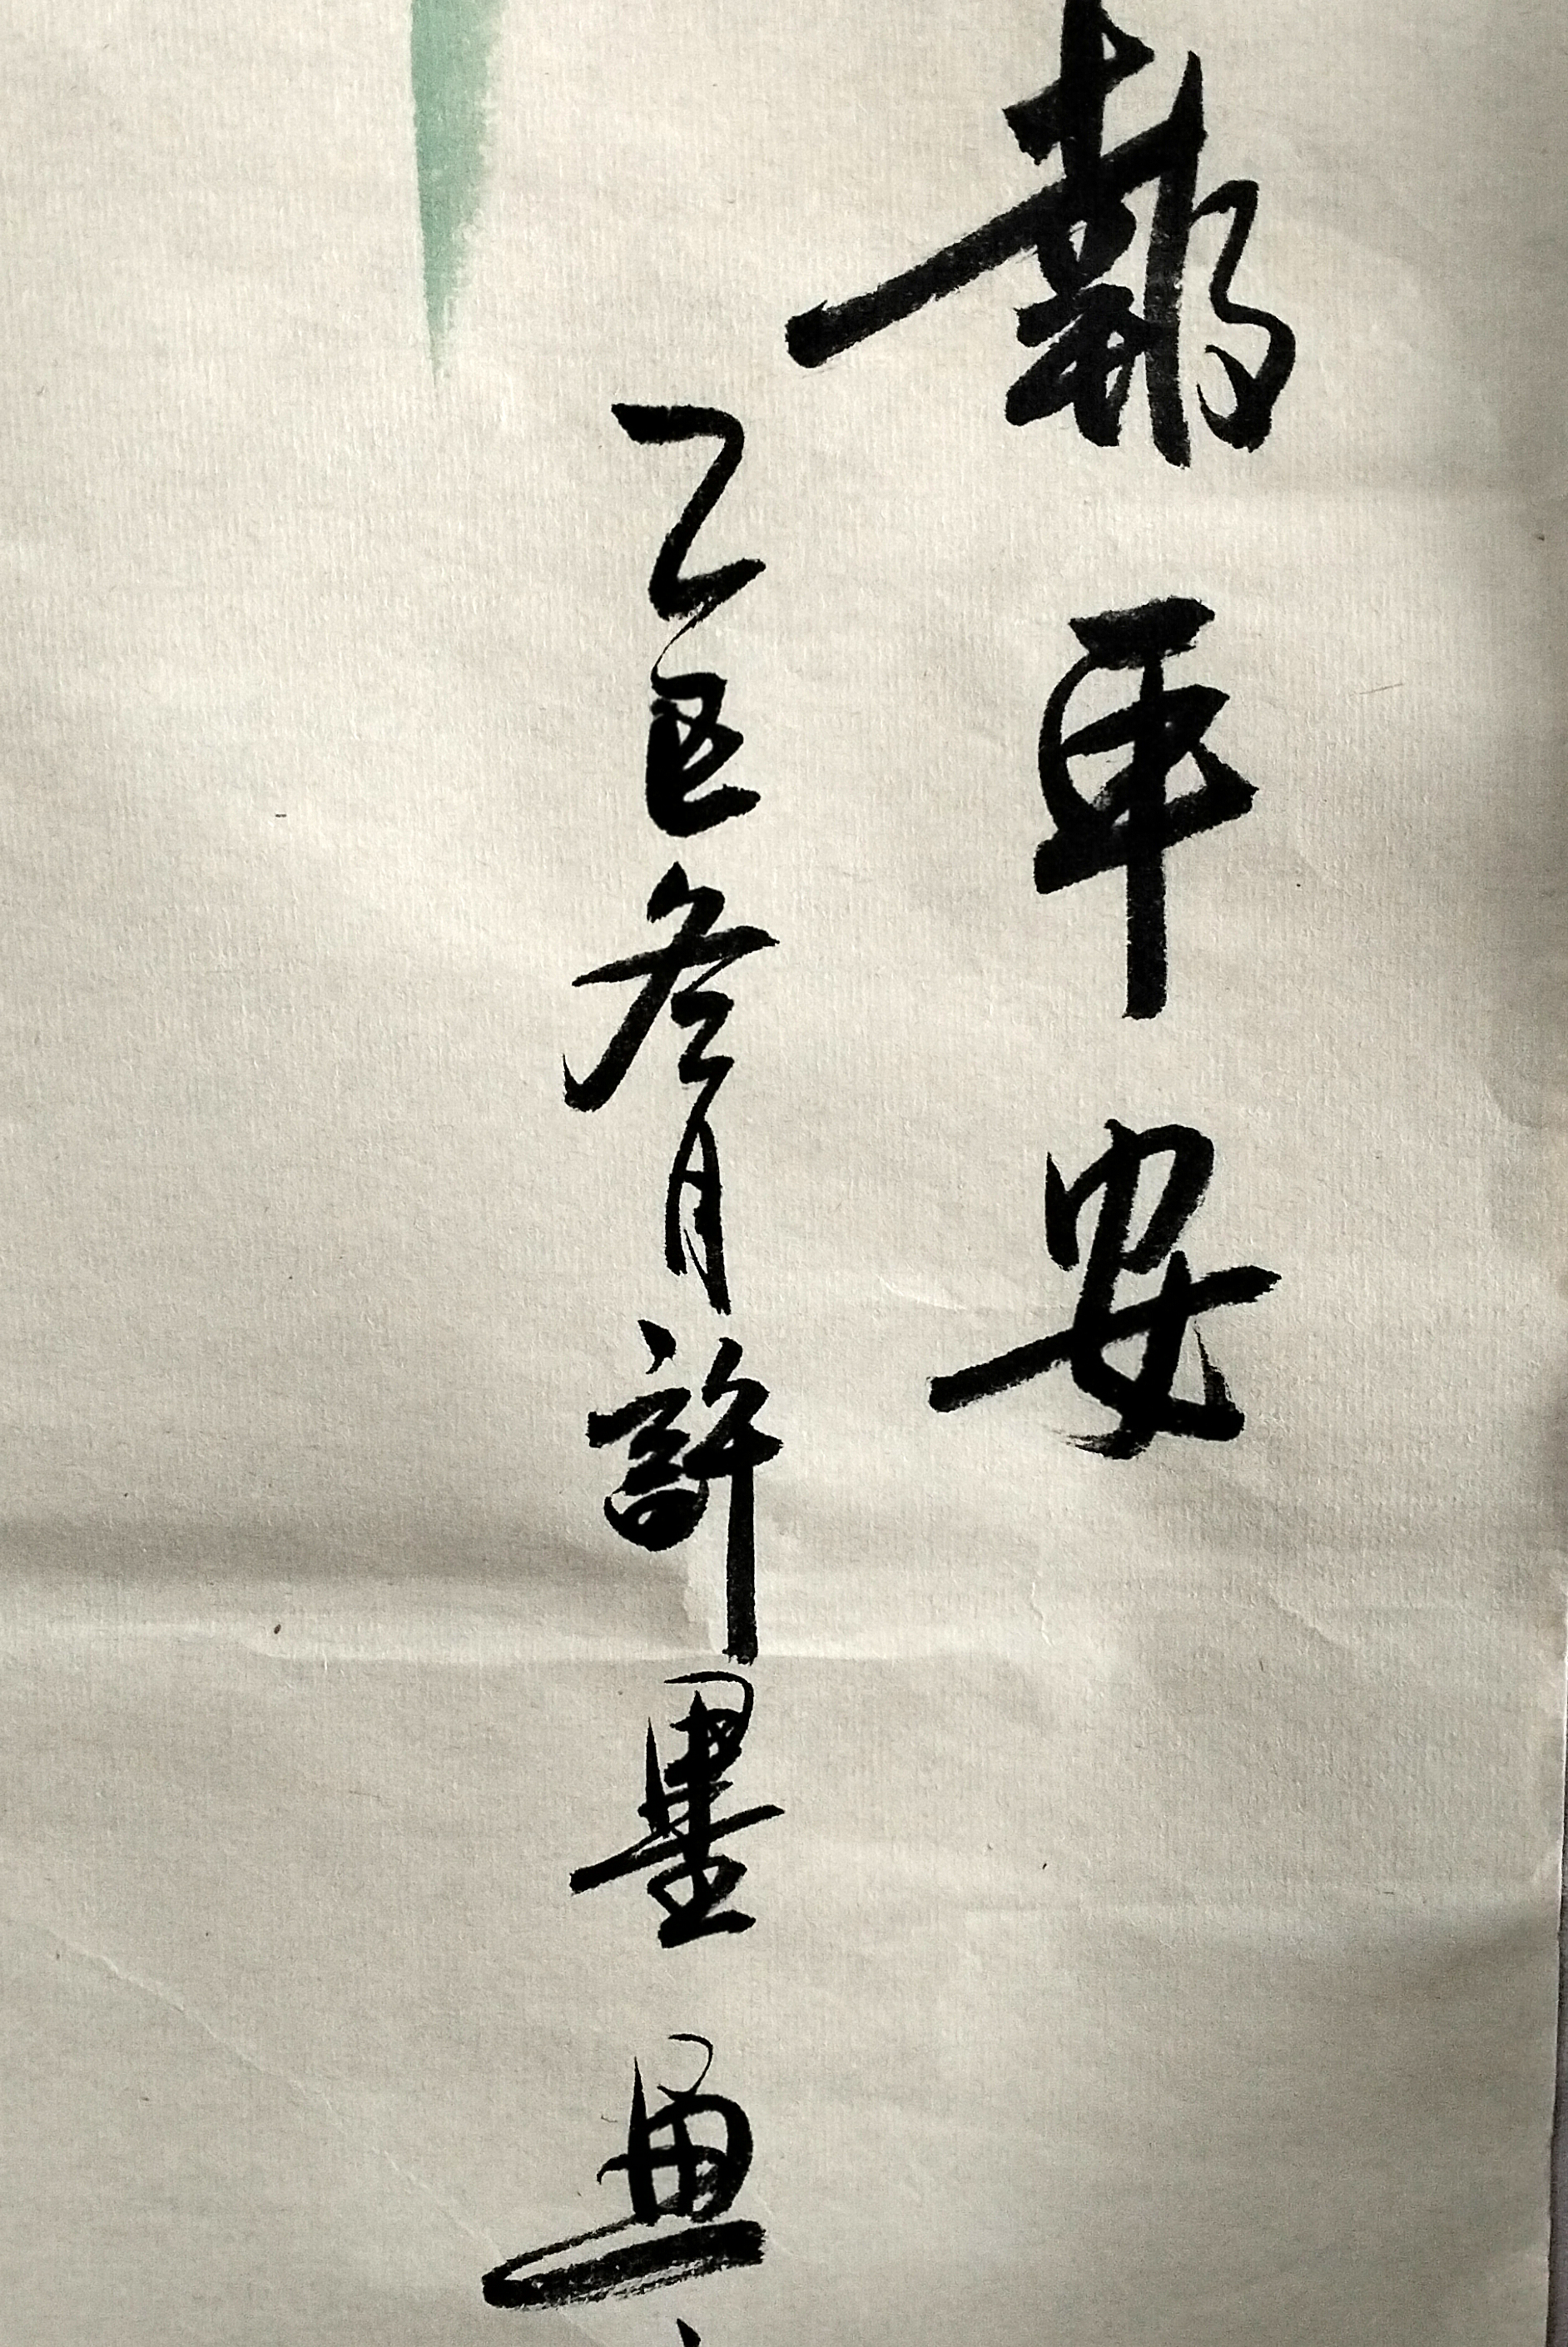 報平安
乙巳叁月許墨畫